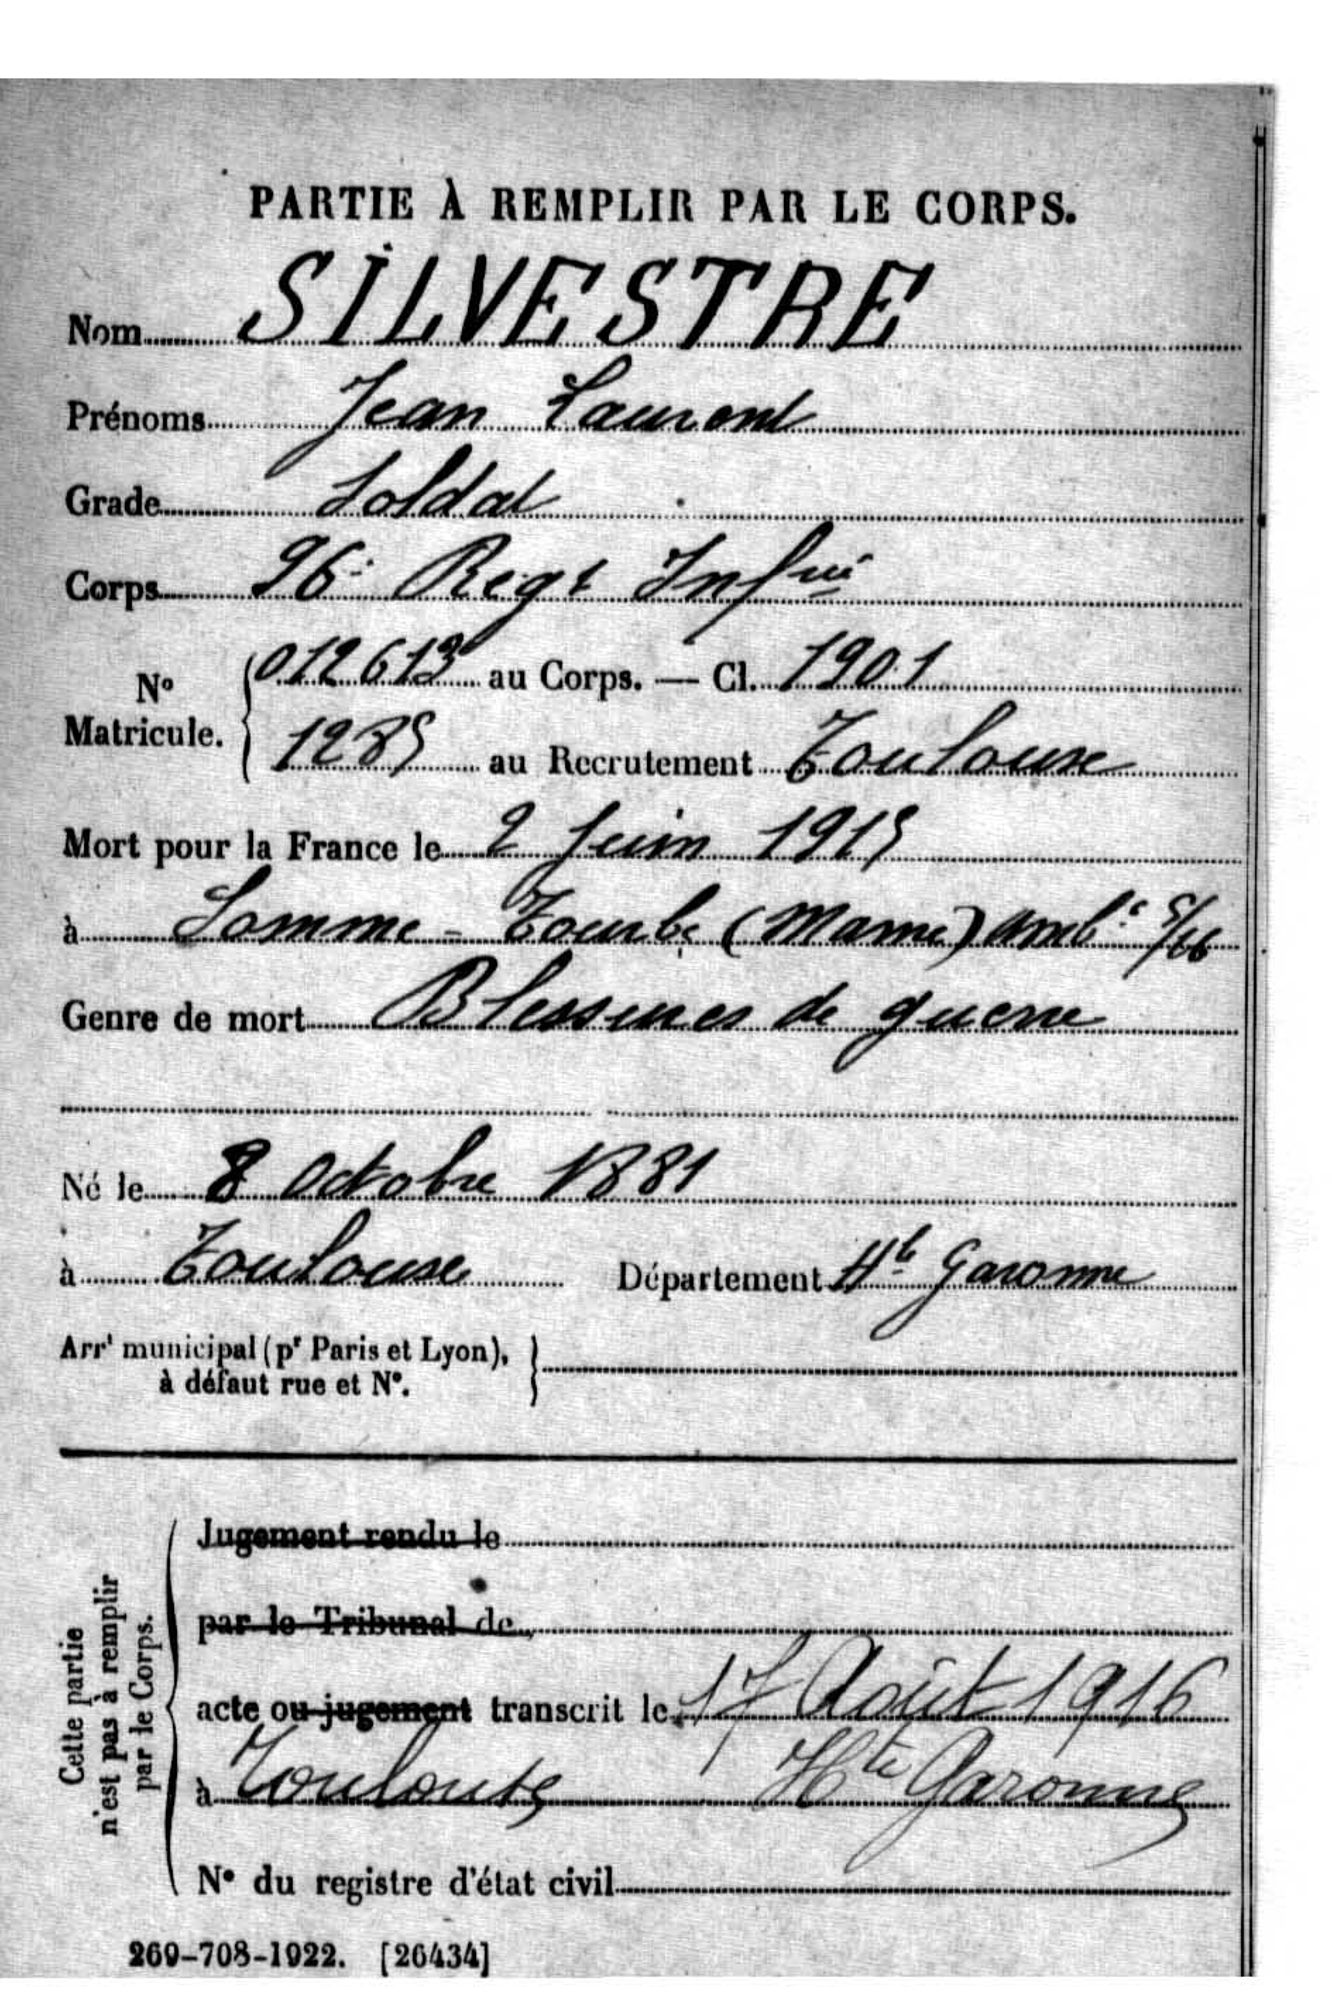 PARTIE À REMPLIR PAR LE CORPS.
Nom SILVESTRE
Prénoms Jean Laurent
Grade Soldat
Corps 96e Regt Infrie
No Matricule. { 012613 au Corps. — Cl. 1901
1285 au Recrutement Toulouse
Mort pour la France le 2 Juin 1915
à Somme-Tourbe (Marne) Ambce 5/16
Genre de mort Blessures de guerre
Né le 8 Octobre 1881
à Toulouse Département Hte Garonne
Arrt municipal (pr Paris et Lyon), }
à défaut rue et No.
Cette partie
n'est pas à remplir
par le Corps.
Jugement rendu le
par le Tribunal de
acte ou jugement transcrit le 17 Août 1916
à Toulouse Hte Garonne
No du registre d'état civil
269-708-1922. [26434]